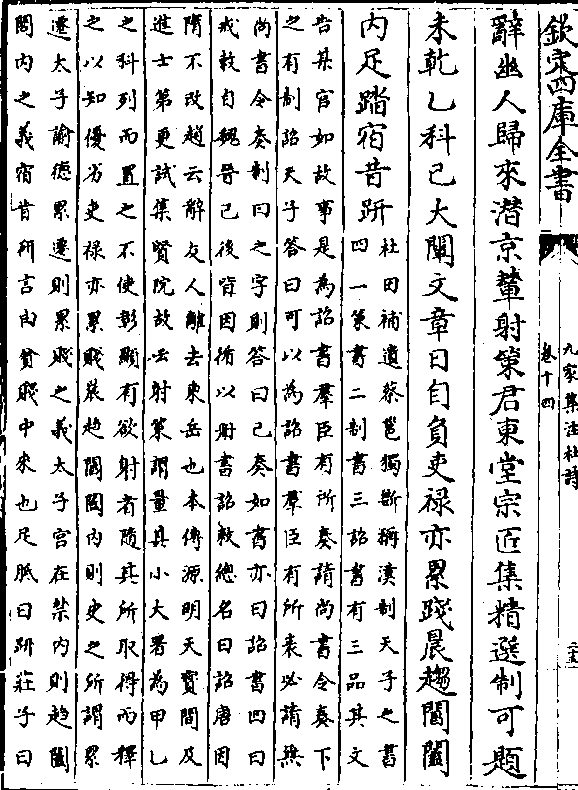 欽定四庫全書
九家集注杜詩
卷十四
辭幽人歸來潛京輦射策君東堂宗匠集精選制可題
未乾乙科已大闡文章日自負吏禄亦累踐晨趨閶闔
內足踏宿昔趼
杜田補遺蔡邕獨斷稱漢制天子之書
四一策書二制書三詔書有三品其文
告某官如故事是為詔書羣臣有所奏請尚書令奏下
之有制詔天子答曰可以為詔書羣臣有所表必請無
尚書令奏制曰之字則答曰已奏如書亦曰詔書四曰
戒敕自魏晉已後皆因循以册書詔敕總名曰詔唐因
隋不改趙云辭友人離去東岳也本傳源明天寶間及
進士第更試集賢院故云射策謂量其小大署為甲乙
之科列而置之不使彰顯有欲射者隨其所取得而釋
之以知優劣吏禄亦累踐晨趨閶闔內則史之所謂累
遷太子諭德累遷則累踐之義太子宮在禁內則趨閶
闔內之義宿昔趼言由貧賤中來也足胝曰趼莊子曰